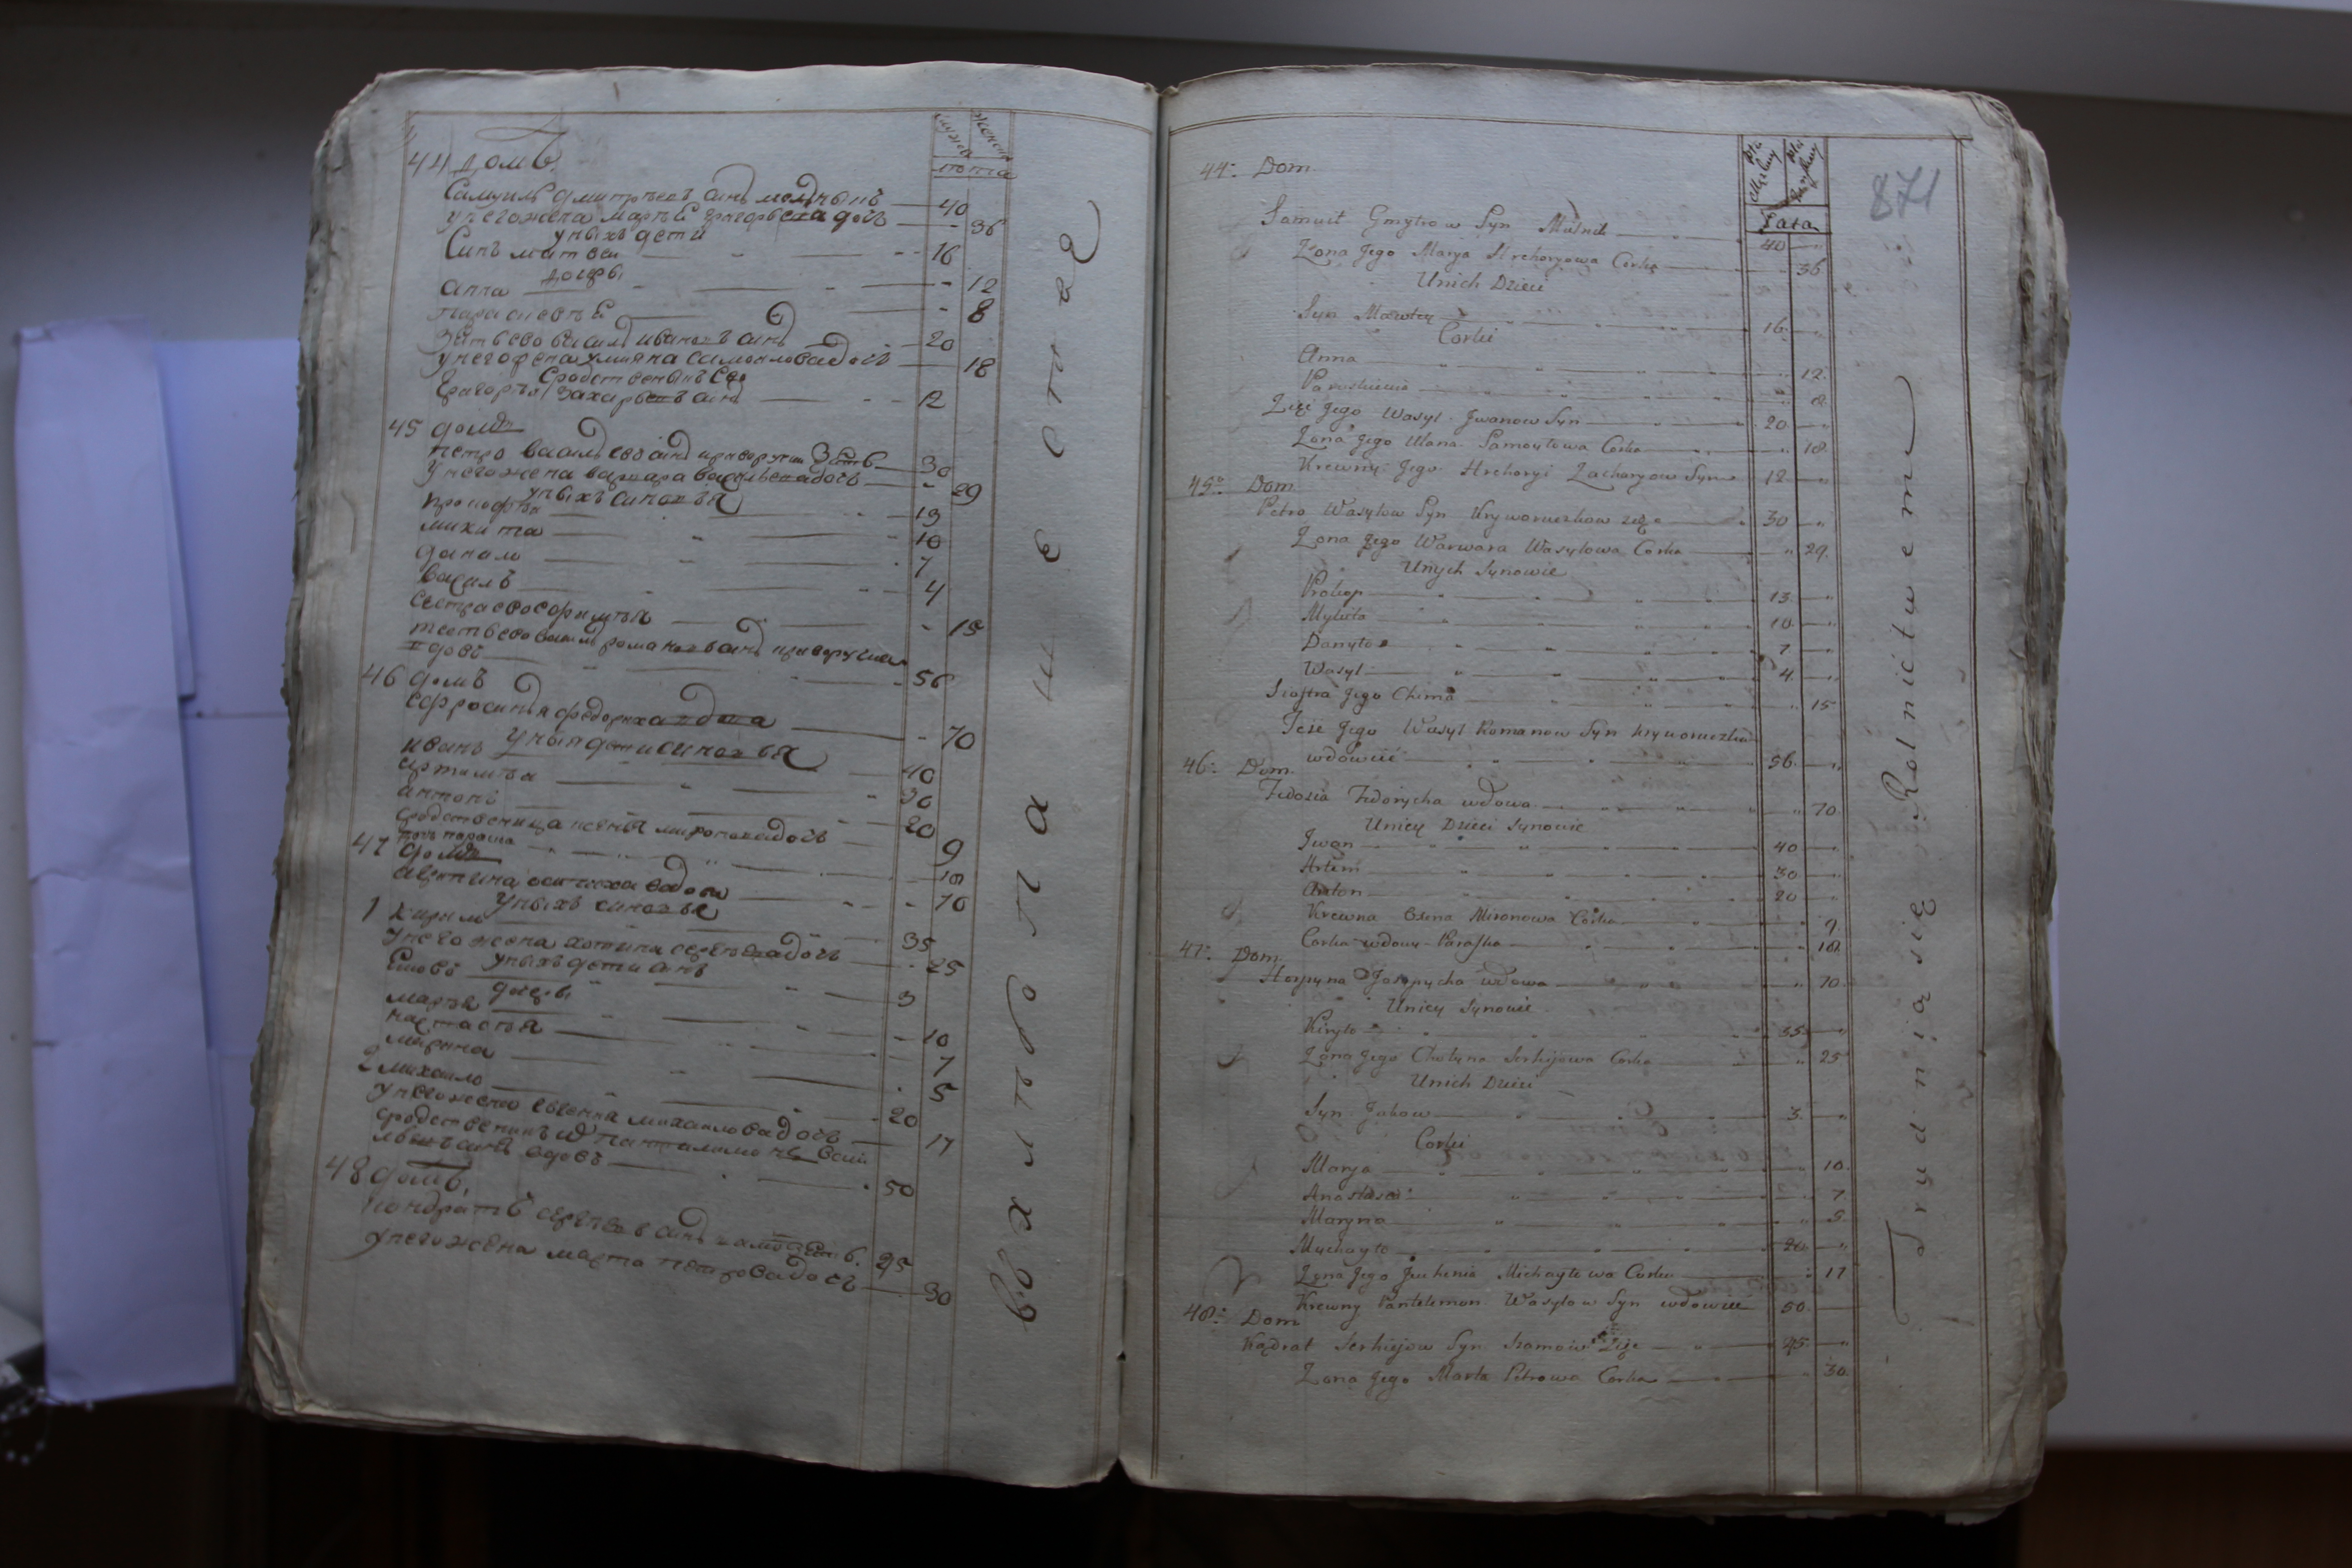 мужеска
женска
лѣта
44 домъ.
Самуилъ дмитриевъ синъ 40
у него жена марья григорьева дочь 36
у нихъ дети
Синъ матвей 16
дочери
анна 12
параскевья 8
зять ево василь ивановъ синъ 20
у него жена улияна самоилова дочь 18
сродственникъ ево
григорей захарьевъ синъ 12
45 домъ
петро васильевъ синъ зять 30
у него жена варвара васильева дочь 29
у нихъ синовья
прокофей 13
микита 10
данило 7
василь 4
сестра ево 15
тесть ево василь романовъ синъ
вдовъ 56
46 домъ
ефросинья федориха вдова 70
у ныя дети синовья
иванъ 40
артемъ 30
антонъ 20
сродственница ксенья миронова дочь 9
дочь параска 18
47 домъ
вдова 70
у ныхъ синовья
1 кирило 35
у него жена хотина сергеева дочь 25
у нихъ дети синъ
яковъ 3
дочери
марья 10
настасья 7
марина 5
2 михайло 20
у него жена евгения михайлова дочь 17
сродственникъ пантилимонъ васи
льевъ синъ вдовъ 50
48 домъ.
кондратъ сергеевъ синъ зять 25
у него жена марта петрова дочь 30
в ъ х л ѣ б о п а ш е с т в е
871
Płci Męzkiey
Płci Żeńskiey
Lata
44: Dom
Samuił Gmytrow Syn Małnik 40 "
Żona Jego Marya Hrehoryowa Corka " 36
Unich Dzieci
Syn Mawtey 16 "
Corki
Anna " 12
Paraskiewia " 8
Zięć Jego Wasyl Jwanow Syn 20 "
Żona Jego Ulana Samoyłowa Corka " 18
Krewny Jego Hrehoryi Zacharyow Syn 12 "
45: Dom
Petro Wasylow Syn Kryworuczkow zięć 30 "
Żona Jego Warwara Wasylowa Corka " 29
Unych Synowie
Prokop 13 "
Mykita 10 "
Danyło 7 "
Wasyl 4 "
Siostra Jego Chima " 15
Teść Jego Wasyl Romanow Syn Kryworuczka
wdowiec 56 "
46: Dom
Fedosia Fedorycha wdowa " 70
Uniey Dzieci Synowie
Jwan 40 "
Artem 30 "
Anton 20 "
Krewna Oxena Mironowa Corka " 9
Corka wdowy Paraska " 18
47: Dom
Horpyna Josypycha wdowa " 70
Uniey Synowie
Kiryło 35 "
Żona Jego Chotyna Serhijowa Corka " 25
Unich Dzieci
Syn Jakow 3 "
Corki
Marya " 10
Anastasia " 7
Maryna " 5
Mychayło 20 "
Żona Jego Jeuhenia Michayłowa Corka " 17
Krewny Pantelemon Wasylow Syn wdowiec 50
48: Dom
Kądrat Serhijow Syn Zięć 25 "
Żona Jego Marta Petrowa Corka " 30
Trudnią się Rolnictwem